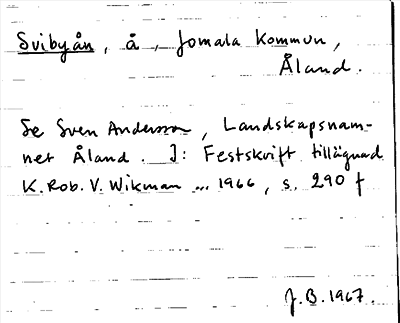 Svibyån, å, Jomala kommun,
Åland.
Se Sven Andersson, Landskapsnam-
net Åland. I: Festskrift tillägnad
K. Rob. V. Wikman ... 1966, s. 290 f
J.B. 1967.